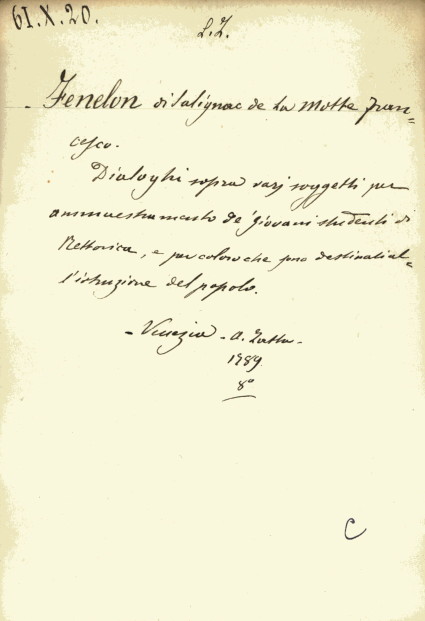 61.X.20.
L.I.
- Fenelon di Salignac de La Mothe Fran=
cesco.
Dialoghi sopra varj soggetti per
ammaestramento de' Giovani studenti di
Rettorica, e per coloro che sono destinati al=
l'istruzione del popolo.
- Venezia - A. Zatta -
1789
8°
C